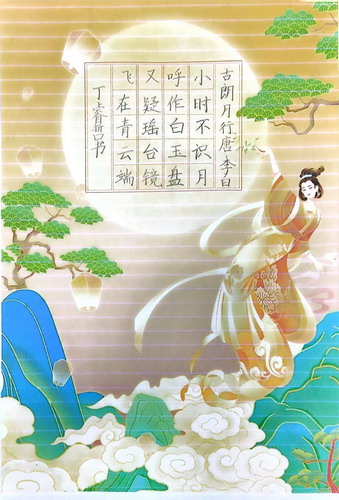 古朗月行唐·李白
小时不识月
呼作白玉盘
又疑瑶台镜
飞在青云端
丁睿哲书